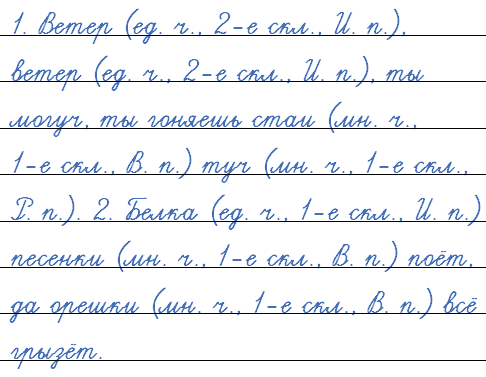 1. Ветер (ед. ч., 2-е скл., И. п.),
ветер (ед. ч., 2-е скл., И. п.), ты
могуч, ты гоняешь стаи (мн. ч.,
1-е скл., В. п.) туч (мн. ч., 1-е скл.,
Р. п.). 2. Белка (ед. ч., 1-е скл., И. п.)
песенки (мн. ч., 1-е скл., В. п.) поёт,
да орешки (мн. ч., 1-е скл., В. п.) всё
грызёт.